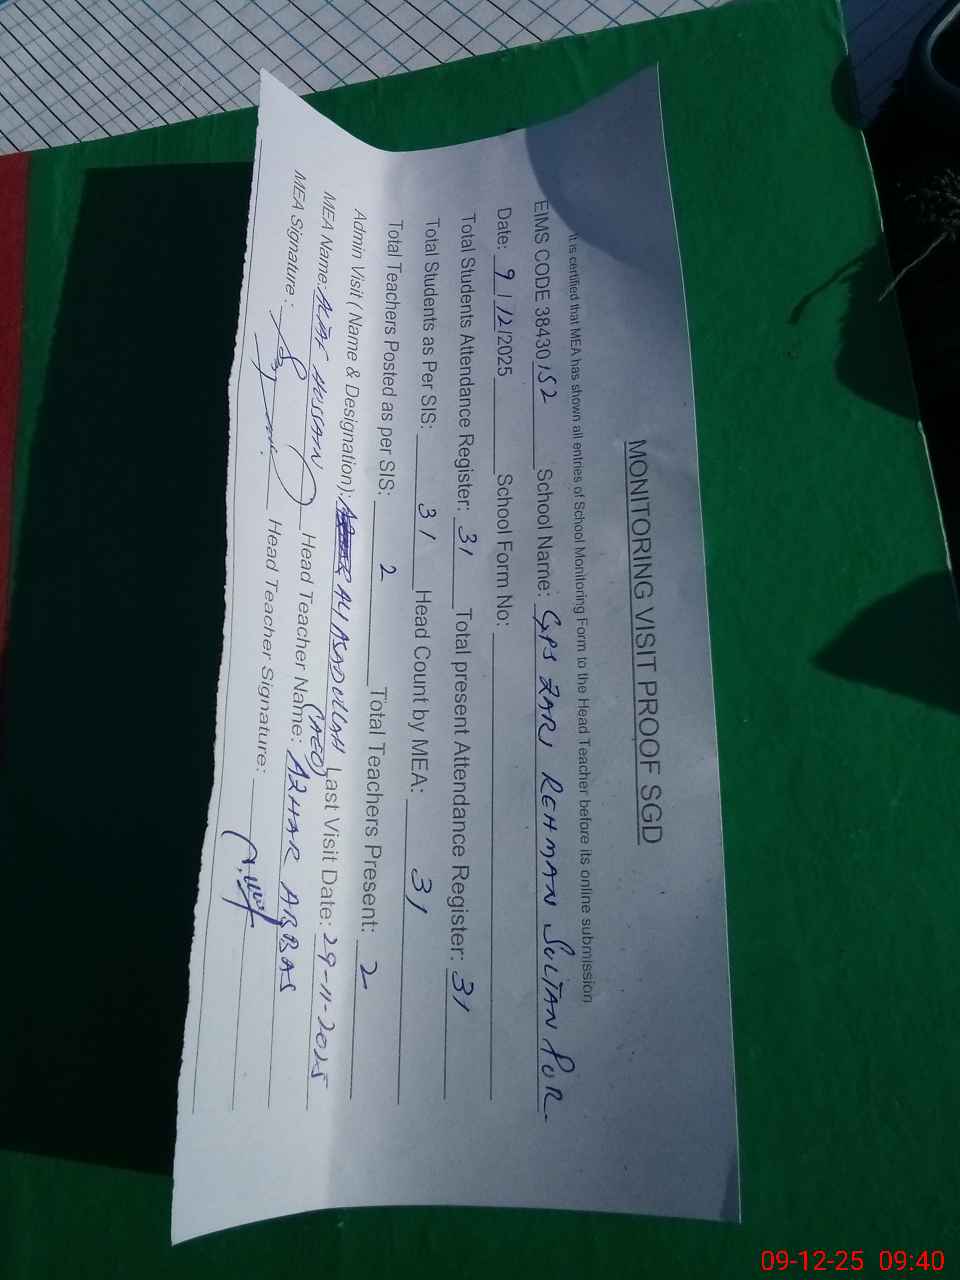 MONITORING VISIT PROOF SGD
It is certified that MEA has shown all entries of School Monitoring Form to the Head Teacher before its online submission
EIMS CODE 38430152 School Name: GPS ZARI REHMAN SULTAN PUR
Date: 9/12/2025 School Form No:
Total Students Attendance Register: 31 Total present Attendance Register: 31
Total Students as Per SIS: 31 Head Count by MEA: 31
Total Teachers Posted as per SIS: 2 Total Teachers Present: 2
Admin Visit ( Name & Designation): ALI ASADULLAH (AEO) Last Visit Date: 29-11-2025
MEA Name: ALTAF HUSSAIN Head Teacher Name: AZHAR ABBAS
MEA Signature: Head Teacher Signature:
09-12-25 09:40